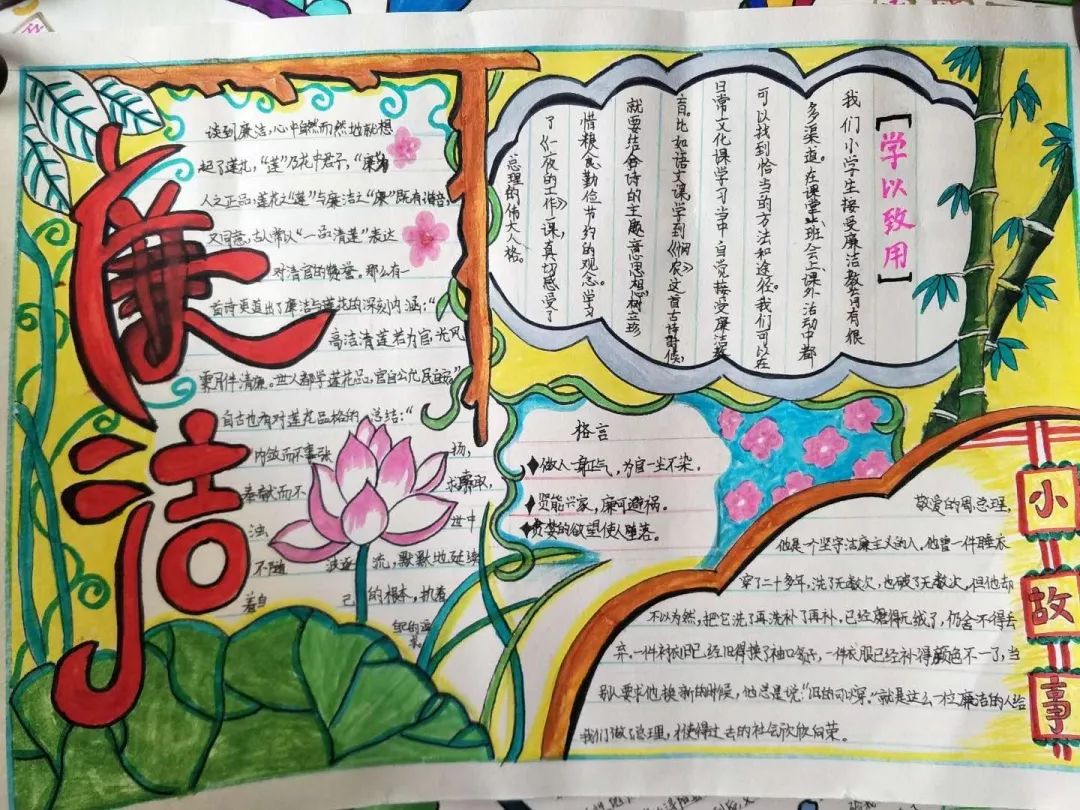 廉洁
谈到廉洁,心中自然而然地就想
起了莲花,“莲”乃花中君子,“廉”为
人之正品;莲花之“莲”与廉洁之“廉”既有谐音,
又同意,古人常以“一品清莲”表达
对清官的赞誉。那么有一
首诗更道出了廉洁与莲花的深刻内涵:“
高洁清莲若为官,光风
霁月伴清廉。世人都学莲花品,官自公允民自安。”
自古也有对莲花品格的总结:“
内敛而不事张扬,
奉献而不求索取,
浊世中
不随波逐流,默默地延续
着自己的根本,执着
学以致用
我们小学生接受廉洁教育有很
多渠道。在课堂上班会上课外活动中都
可以找到恰当的方法和途径。我们可以在
日常文化课学习当中自觉接受廉洁教
育。比如语文课,学到《悯农》这首古诗时候,
就要结合诗的主题意思想,树立珍
惜粮食勤俭节约的观念。学习
了《一夜的工作》一课,真切感受了
总理的伟大人格。
格言
做人一身正气,为官一尘不染。
贤能兴家,廉可避祸。
贪婪的欲望使人堕落。
小故事
敬爱的周总理,
他是个坚守洁廉主义的人。他曾一件睡衣
穿了二十多年,洗了无数次,也破了无数次,但他却
不以为然,把它洗了再洗补了再补,已经磨得无绒了,仍舍不得丢
弃。一件衬衣旧已经旧得换了袖口领子,一件衣服已经补得颜色不一了,当
别人要求他换新的时候,他总是说:“旧的可以穿。”就是这么一位廉洁的人给
我们做了总理,才使得过去的社会欣欣向荣。